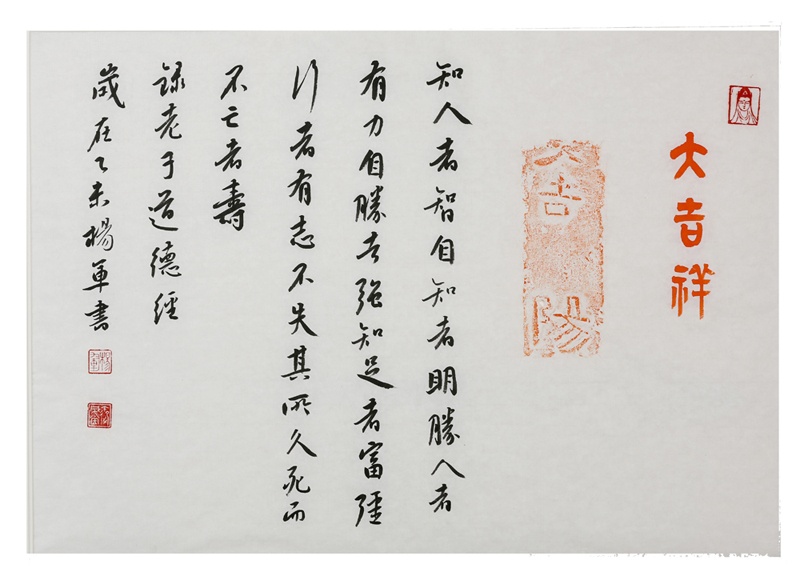 大吉祥
大吉陽
知人者智自知者明勝人者
有力自勝者强知足者富强
行者有志不失其所久死而
不亡者壽
録老子道德經
歲在乙未楊軍書